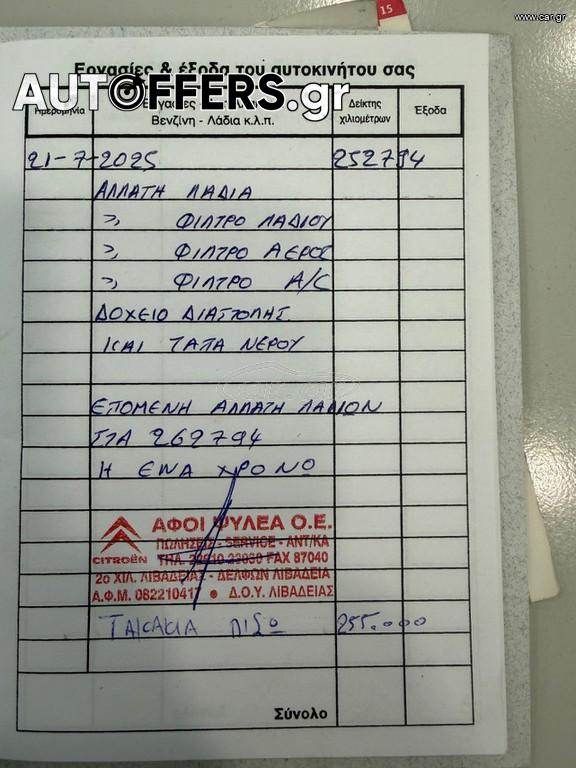 www.car.gr
15
Εργασίες & έξοδα του αυτοκινήτου σας
AUTOFFERS.gr
Ημερομηνία
Βενζίνη - Λάδια κ.λ.π.
Δείκτης χιλιομέτρων
Έξοδα
21-7-2025 252794
ΑΛΛΑΓΗ ΛΑΔΙΑ
" ΦΙΛΤΡΟ ΛΑΔΙΟΥ
" ΦΙΛΤΡΟ ΑΕΡΟΣ
" ΦΙΛΤΡΟ A/C
ΔΟΧΕΙΟ ΔΙΑΣΤΟΛΗΣ
ΚΑΙ ΤΑΠΑ ΝΕΡΟΥ
ΕΠΟΜΕΝΗ ΑΛΛΑΓΗ ΛΑΔΙΩΝ
ΓΙΑ 262794
Η ΕΝΑ ΧΡΟΝΟ
ΑΦΟΙ ΨΥΛΕΑ Ο.Ε.
ΠΩΛΗΣΕΙΣ - SERVICE - ΑΝΤ/ΚΑ
CITROËN ΤΗΛ. FAX 87040
2ο ΧΙΛ. ΛΙΒΑΔΕΙΑΣ - ΔΕΛΦΩΝ ΛΙΒΑΔΕΙΑ
Α.Φ.Μ. 082210417 • Δ.Ο.Υ. ΛΙΒΑΔΕΙΑΣ
ΤΑΚΑΚΙΑ ΠΙΣΩ 255.000
Σύνολο